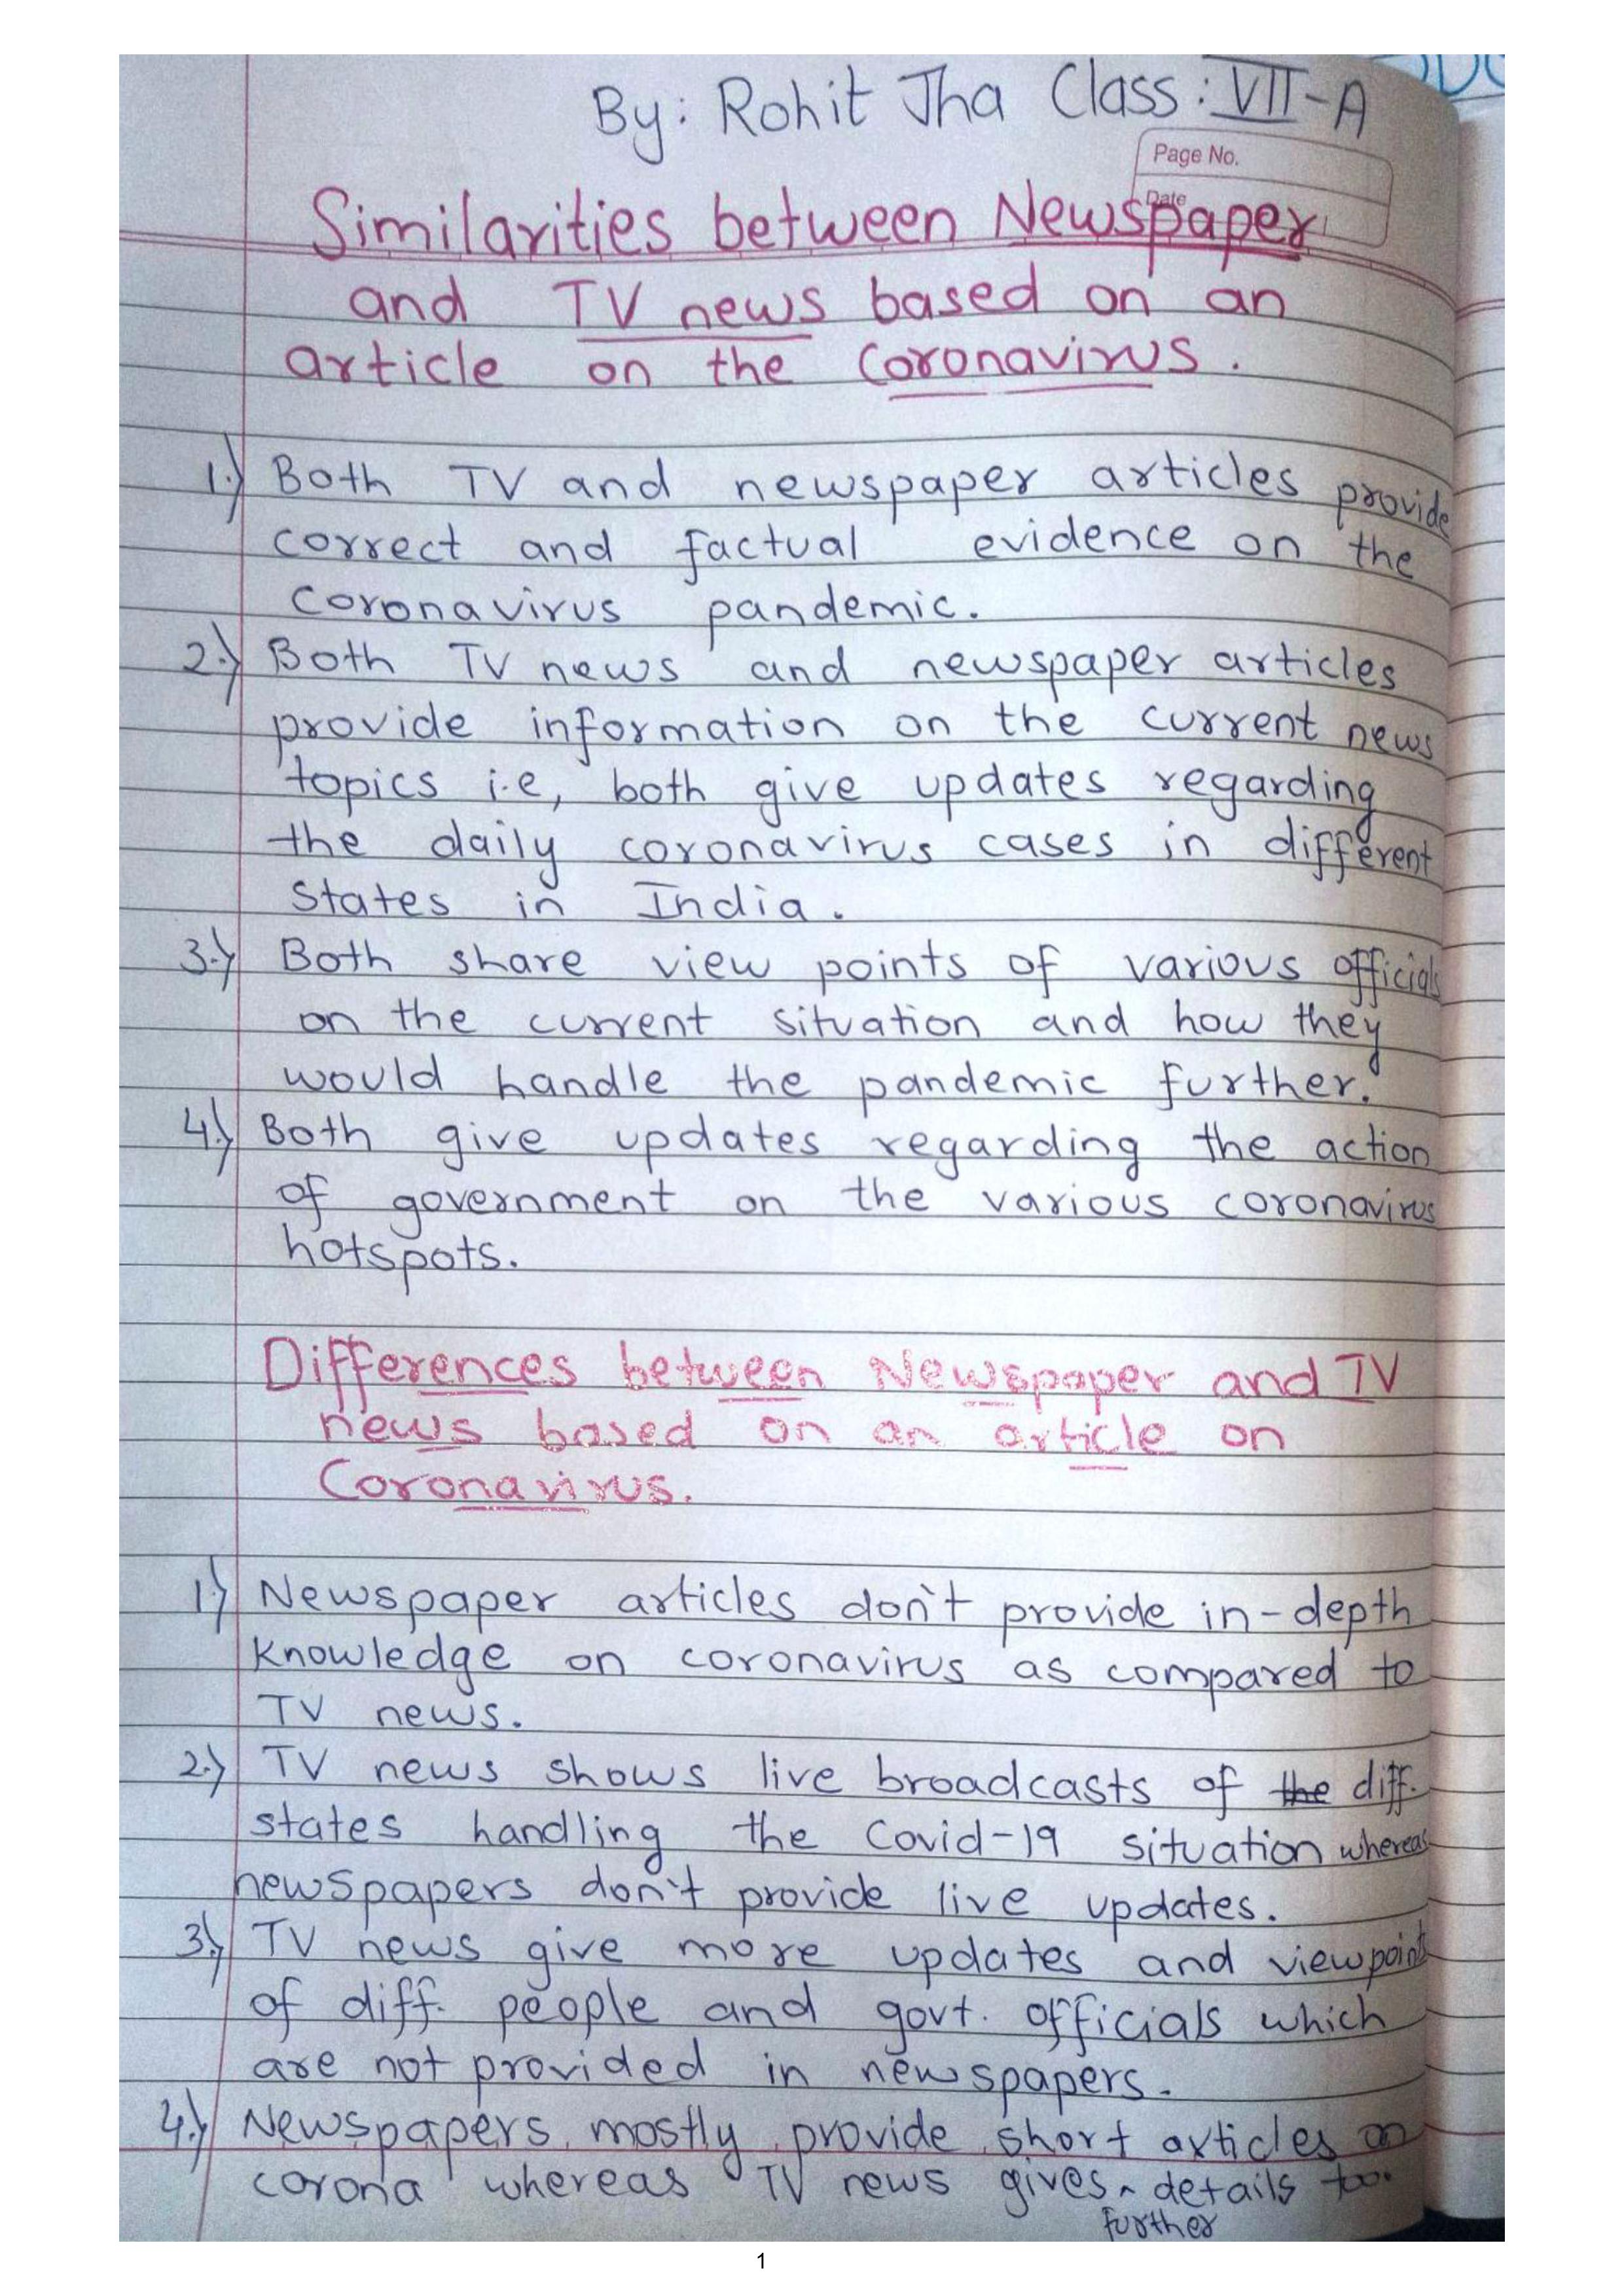 By: Rohit Jha Class: VII-A
Page No.
Date
Similarities between Newspaper
and TV news based on an
article on the Coronavirus.
1.) Both TV and newspaper articles provide
correct and factual evidence on the
coronavirus pandemic.
2.) Both TV news and newspaper articles
provide information on the current news
topics i.e, both give updates regarding
the daily coronavirus cases in different
states in India.
3.) Both share view points of various officials
on the current situation and how they
would handle the pandemic further.
4.) Both give updates regarding the action
of government on the various coronavirus
hotspots.
Differences between Newspaper and TV
news based on an article on
Coronavirus.
1.) Newspaper articles don't provide in-depth
knowledge on coronavirus as compared to
TV news.
2.) TV news shows live broadcasts of the diff.
states handling the Covid-19 situation whereas
newspapers don't provide live updates.
3.) TV news give more updates and viewpoints
of diff. people and govt. officials which
are not provided in newspapers.
4.) Newspapers mostly provide short articles on
corona whereas TV news gives ^ details too.
further
1